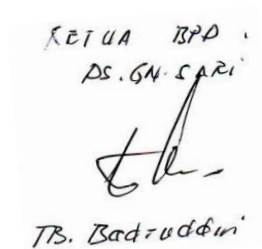 KETUA BPD.
DS. GN. SARI
TB. Badruddin